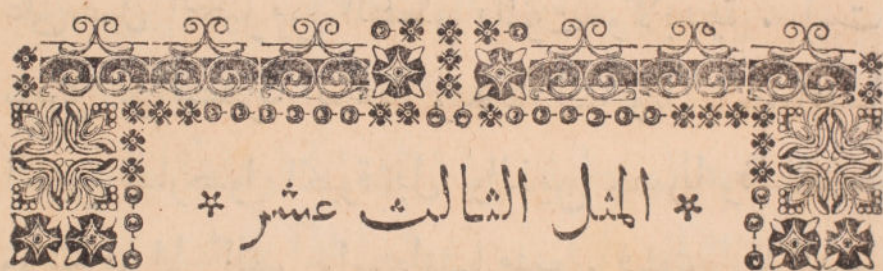 * المثل الثالث عشر *